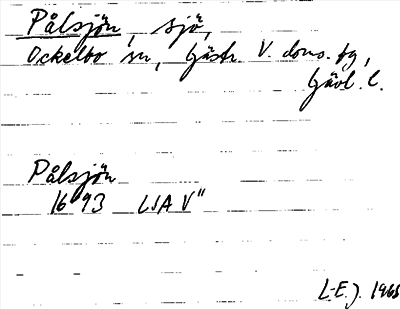 Pålsjön, sjö,
Ockelbo sn, Gästr. V. doms. tg,
Gävl. l.
Pålsjön
1693 LSA V"
L-E.J. 1965